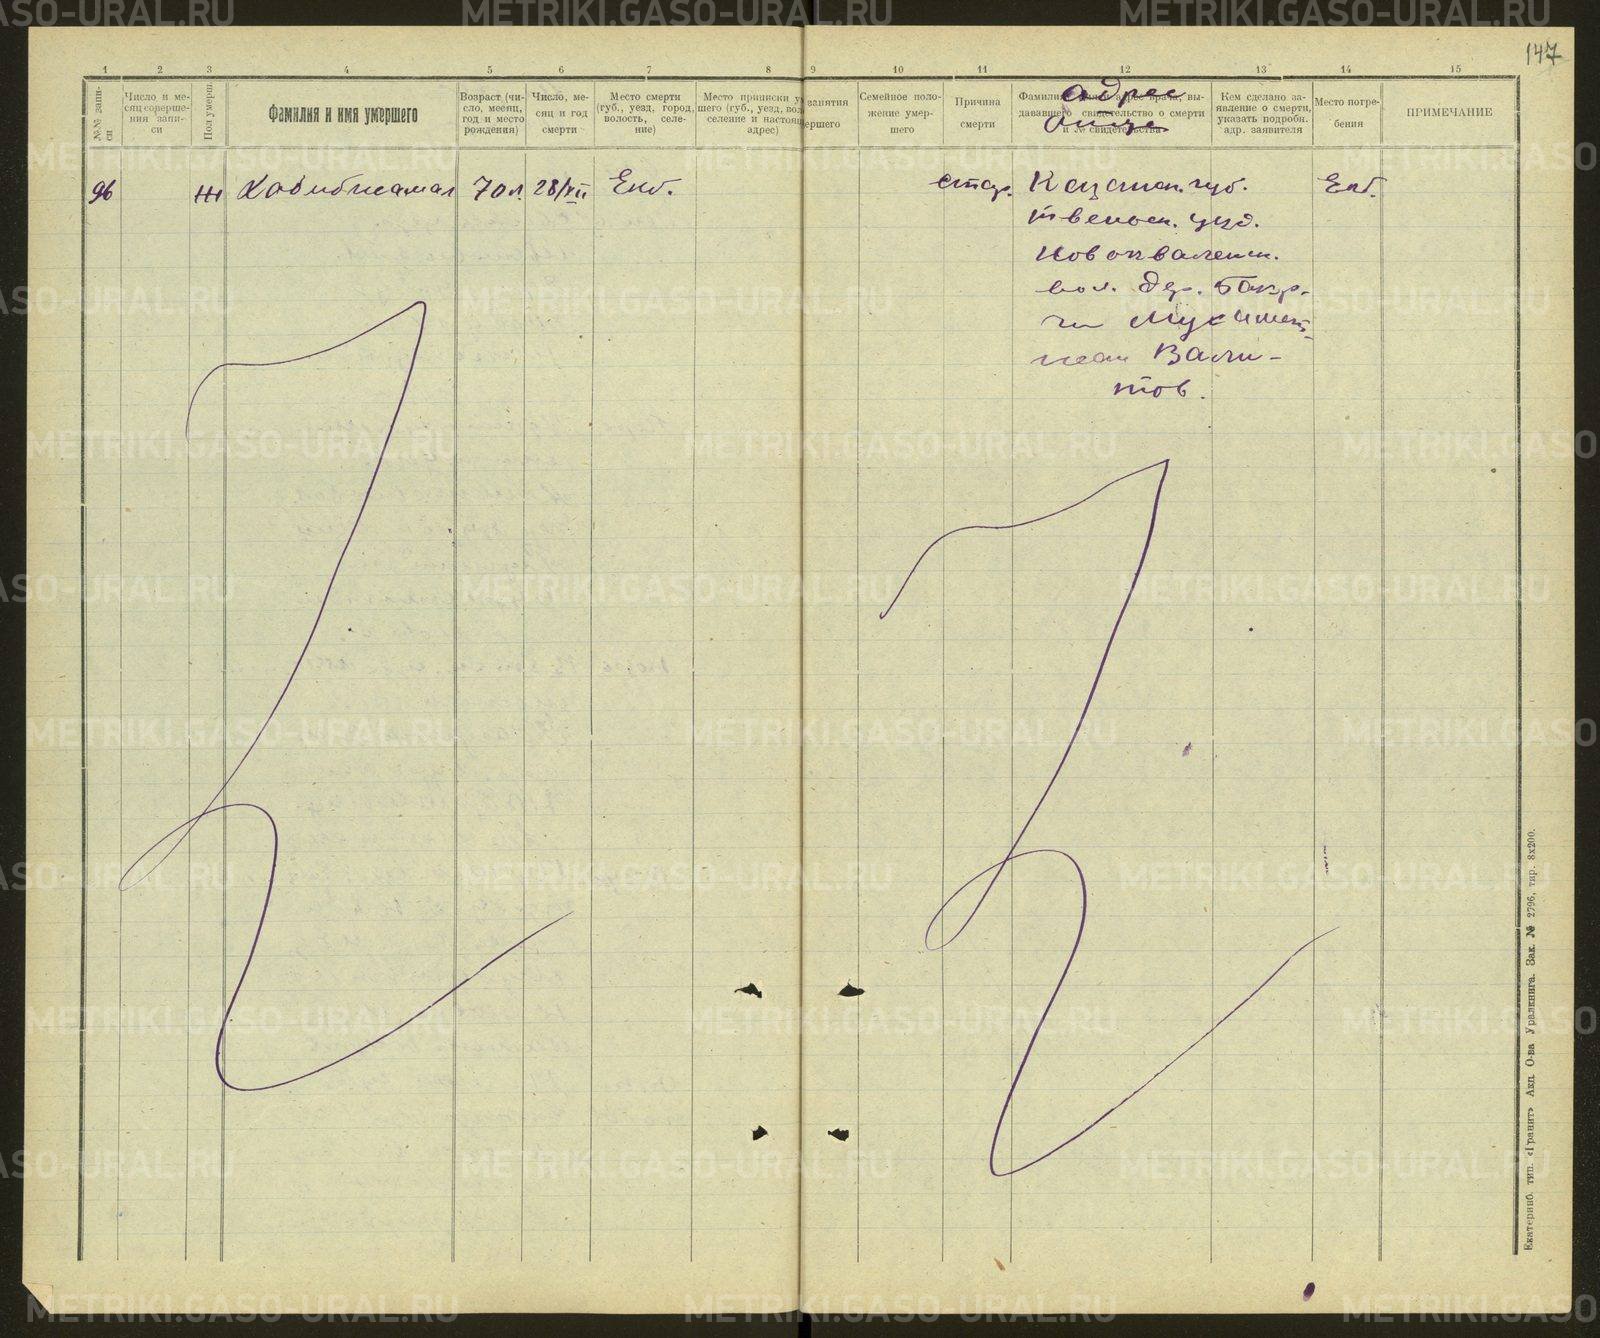 147
1 2 3 4 5 6 7 8 9 10 11 12 13 14 15
№№ запи-
си
Число и ме-
сяц соверше-
ния запи-
си
Пол умерш.
Фамилия и имя умершего
Возраст (чи-
сло, месяц,
год и место
рождения)
Число, ме-
сяц и год
смерти
Место смерти
(губ., уезд, город,
волость, селе-
ние)
Место приписки у
шего (губ., уезд, вол
селение и настоящ
адрес)
занятия
ершего
Семейное поло-
жение умер-
шего
Причина
смерти
Фамилия адрес врача, вы-
дававшего свидетельство о смерти
и № свидетельства
адрес
отца
Кем сделано за-
явление о смерти,
указать подробн.
адр. заявителя
Место погре-
бения
ПРИМЕЧАНИЕ
96 Ж Хабибжамал 70 л. 28/XII Екб. стар. Казанск. губ. Екб.
уезд.
вол. дер.
Вали-
тов.
Екатеринб. тип. «Гранит» Акц. О-ва Уралкнига. Зак. № 2796, тир. 8х200.
METRIKI.GASO-URAL.RU